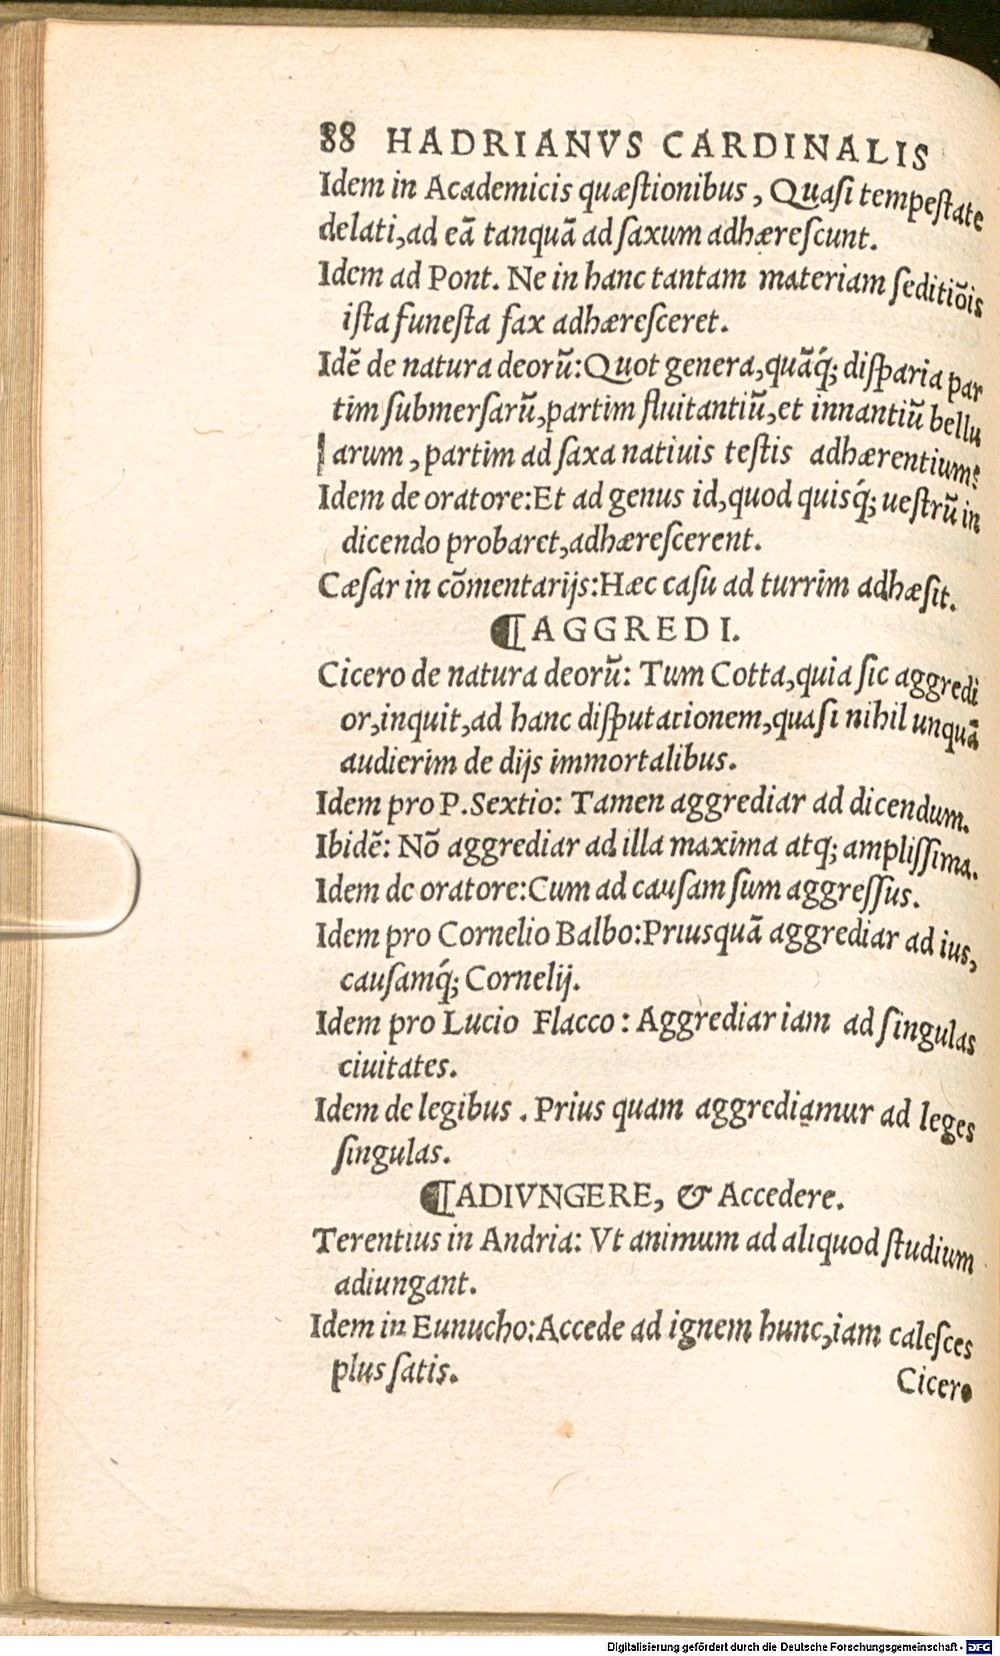 88 HADRIANVS CARDINALIS
Idem in Academicis quæſtionibus, Quaſi tempeſtate
delati, ad eã tanquã ad ſaxum adhæreſcunt.
Idem ad Pont. Ne in hanc tantam materiam ſeditiõis
iſta funeſta fax adhæreſceret.
Idẽ de natura deorũ: Quot genera, quãq́; diſparia par
tim ſubmerſarũ, partim fluitantiũ, et innantiũ bellu
arum, partim ad ſaxa natiuis teſtis adhærentium:
Idem de oratore: Et ad genus id, quod quisq́; ueſtrũ in
dicendo probaret, adhæreſcerent.
Cæſar in cõmentarijs: Hæc caſu ad turrim adhæſit.
¶AGGREDI.
Cicero de natura deorũ: Tum Cotta, quia ſic aggredi
or, inquit, ad hanc diſputationem, quaſi nihil unquã
audierim de dijs immortalibus.
Idem pro P. Sextio: Tamen aggrediar ad dicendum.
Ibidẽ: Nõ aggrediar ad illa maxima atq; ampliſſima.
Idem de oratore: Cum ad cauſam ſum aggreſſus.
Idem pro Cornelio Balbo: Priusquã aggrediar ad ius,
cauſamq́; Cornelij.
Idem pro Lucio Flacco: Aggrediar iam ad ſingulas
ciuitates.
Idem de legibus. Prius quam aggrediamur ad leges
ſingulas.
¶ADIVNGERE, & Accedere.
Terentius in Andria: Vt animum ad aliquod ſtudium
adiungant.
Idem in Eunucho: Accede ad ignem hunc, iam caleſces
plus ſatis.
Cicero
Digitalisierung gefördert durch die Deutsche Forschungsgemeinschaft - DFG